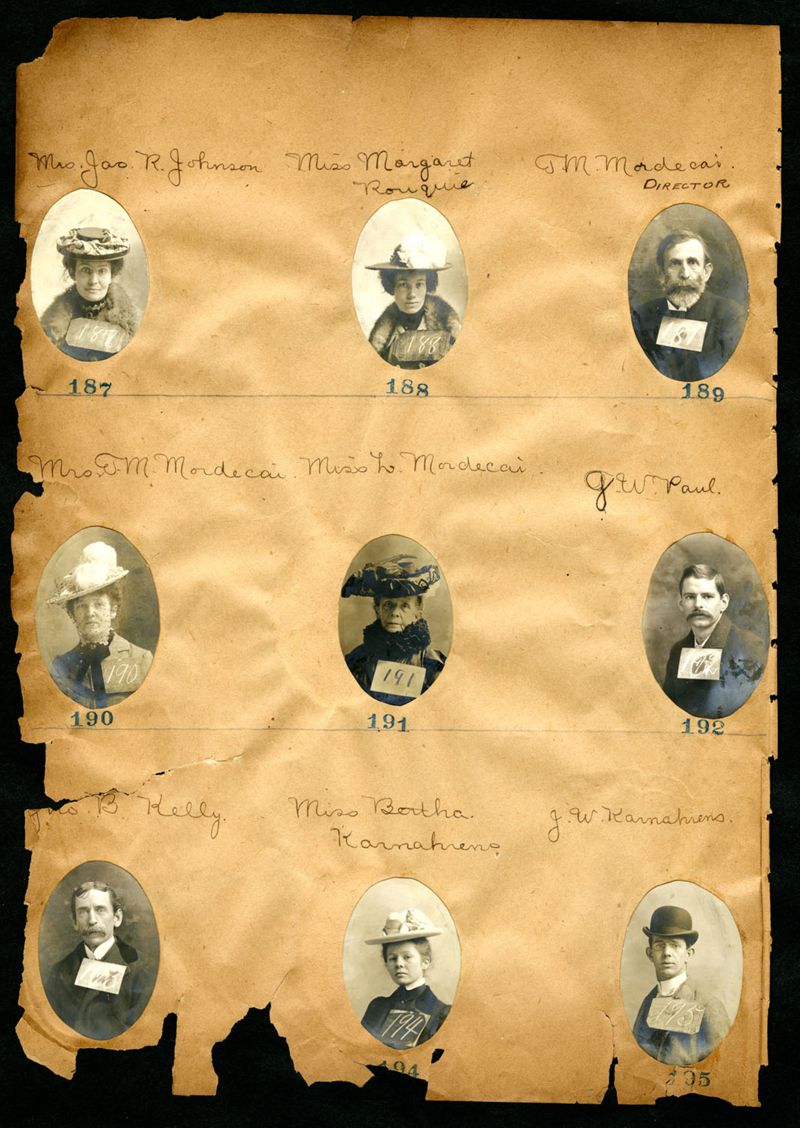 Mrs. Jas. R. Johnson
Miss Margaret
Rouquie
T. M. Mordecai.
DIRECTOR
187
188
189
187
188
189
Mrs. T. M. Mordecai.
Miss L. Mordecai.
J. W. Paul.
190
191
192
190
191
192
Jno. B. Kelly.
Miss Bertha.
Karnahrens
J. W. Karnahrens.
194
195
194
195